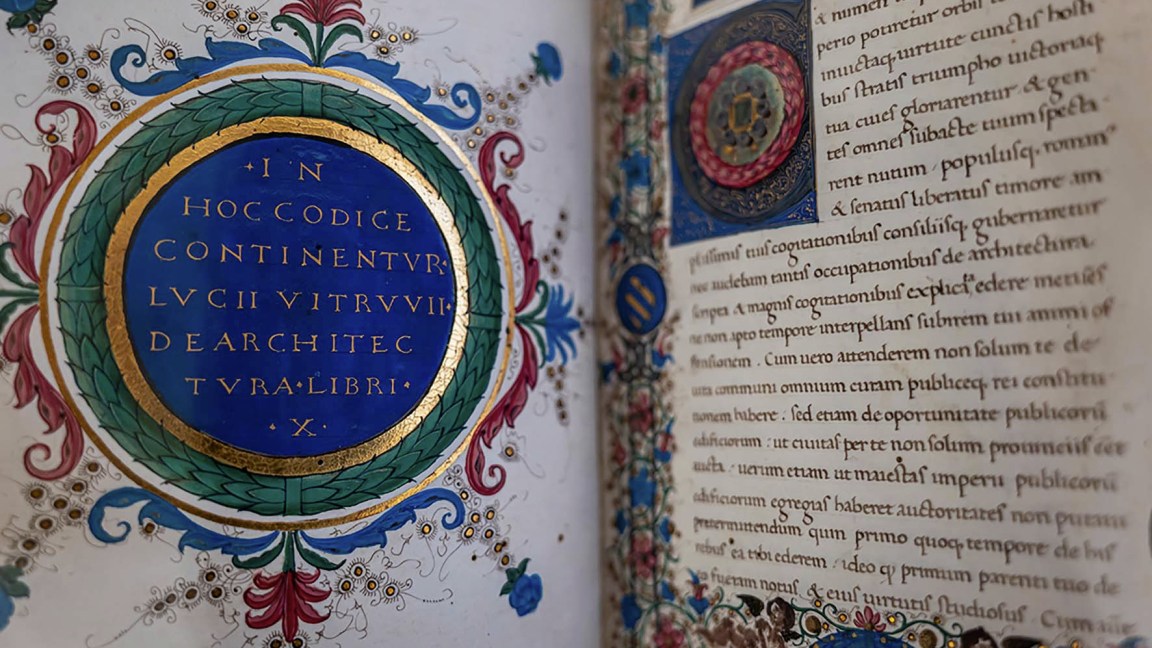 ·I N
HOC CODICE
CONTINENTVR·
LVCII VITRVVII·
DE ARCHITEC
TVRA·LIBRI·
·X·
& numen
perio potiretur orbis
inuictaq; uirtute cunctis hosti
bus stratis triumpho uictoriaq;
tua ciues gloriarentur · & gen-
tes omnes subacte tuum specta-
rent nutum / populusq; roman
& senatus liberatus timore am
plissimis tuis cogitationibus consiliisq; gubernaretur
audebam tantis occupationibus de architectura
scripta & magnis cogitationibus explicata edere metuens
ne non apto tempore interpellans subirem tui animi of
fensionem . Cum uero attenderem non solum te de
uita communi omnium curam publiceq; rei constitu
tionem habere : sed etiam de oportunitate publicorū
edificiorum : ut ciuitas per te non solum prouinciis
aucta . uerum etiam ut maiestas imperii publicorū
edificiorum egregias haberet auctoritates non putaui
pretermittendum quin primo quoq; tempore de his
rebus ea tibi ederem : ideo q primum parenti tuo de
fueram notus & eius uirtutis studiosus . Cum